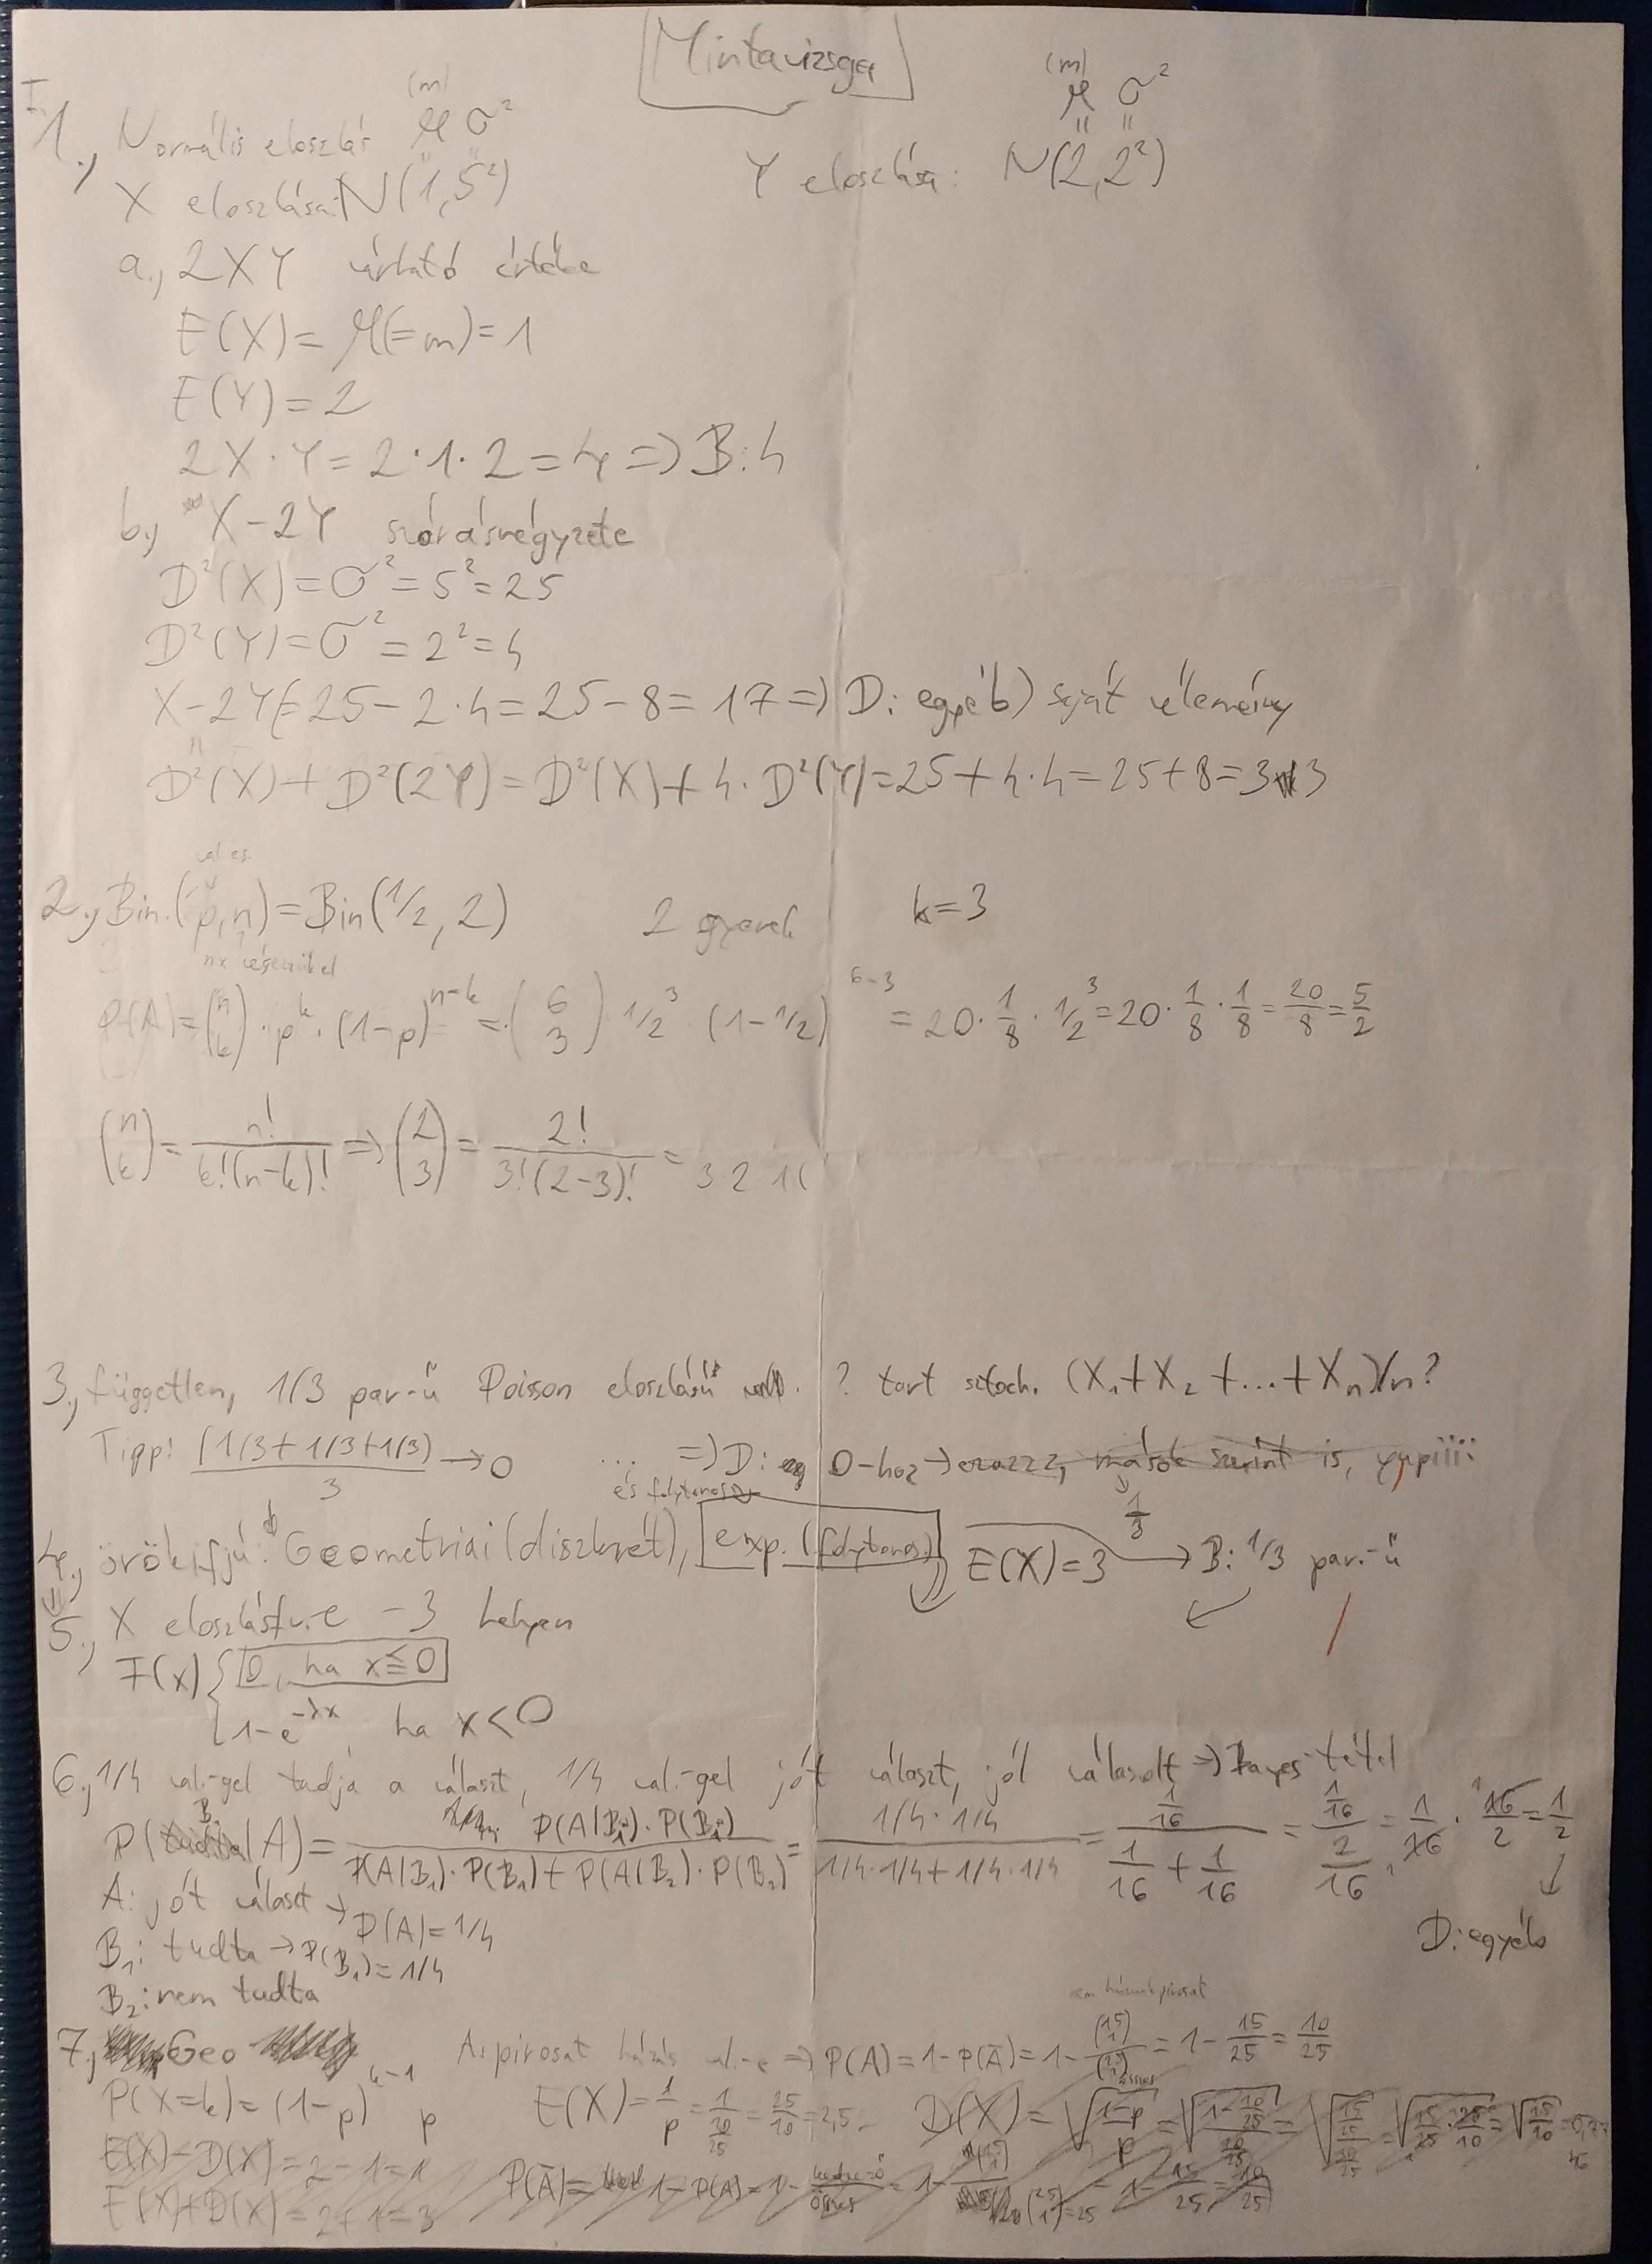 Mintavizsga
I.
1., Normális eloszlás
(m)
μ σ²
X eloszlása: N(1,5²)
(m)
μ σ²
Y eloszlása: N(2,2²)
a., 2XY várható értéke
E(X)= μ(=m)=1
E(Y)=2
2X·Y=2·1·2=4=>B:4
b., X-2Y szórásnégyzete
D²(X)=σ²=5²=25
D²(Y)=σ²=2²=4
X-2Y=25-2·4=25-8=17=>D: egyéb) saját vélemény
D²(X)+D²(2Y)=D²(X)+4·D²(Y)=25+4·4=25+8=33
2., Bin.(p,n)=Bin(1/2, 2) 2 gyerek k=3
P(A)=(n k)·p^k·(1-p)^n-k=·(6 3)·1/2³·(1-1/2)^6-3=20·1/8·1/2³=20·1/8·1/8=20/8=5/2
(n k)=n!/k!(n-k)!=>(2 3)=2!/3!(2-3)!= 3 2 1(
3., független, 1/3 par-ű Poisson eloszlású ? tart sztoch. (X₁+X₂+...+Xn)/n?
Tipp: (1/3+1/3+1/3)/3→0 ... =>D: 0-hoz→ mások szerint is, yupiiii
és folytonos
1/3
4., örökifjú: Geometriai (diszkrét), exp. (folytonos) E(X)=3 →B: 1/3 par.-ű
5., X eloszlásfv.-e -3 helyen
F(x) {0, ha x≤0
1-e^-λx, ha x<0
6., 1/4 val.-gel tudja a választ, 1/4 val.-gel jót választ, jól válaszolt→Bayes-tétel
P(B|A)=P(A|B₁)·P(B₁)/P(A|B₁)·P(B₁)+P(A|B₂)·P(B₂)=1/4·1/4/1/4·1/4+1/4·1/4=1/16/1/16+1/16=1/16/2/16=1/16·16/2=1/2
A: jót választ→P(A)=1/4
B₁: tudta→P(B₁)=1/4
D: egyéb
B₂: nem tudta
nem húzunk pirosat
7., Geo A: pirosat húzás val.-e =>P(A)=1-P(Ā)=1-(15 1)/(25 1)=1-15/25=10/25
összes
P(X=k)=(1-p)^k-1 p E(X)=1/p=1/10/25=25/10=2,5 D(X)=√1-p/p=√1-10/25/10/25=√15/25/10/25=√15/25·25/10=√15/10
E(X)-D(X)=2-1=1
P(Ā)= 1-P(A)=1-kedvező/összes=1-(15 1)/(25 1)=25=1-15/25=10/25
E(X)+D(X)=2+1=3